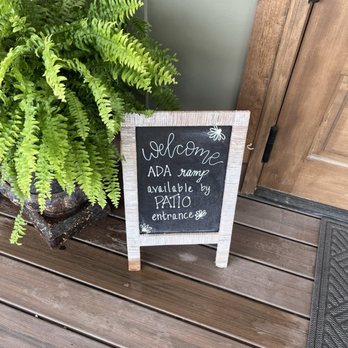 welcome
ADA ramp
available by
PATIO
entrance